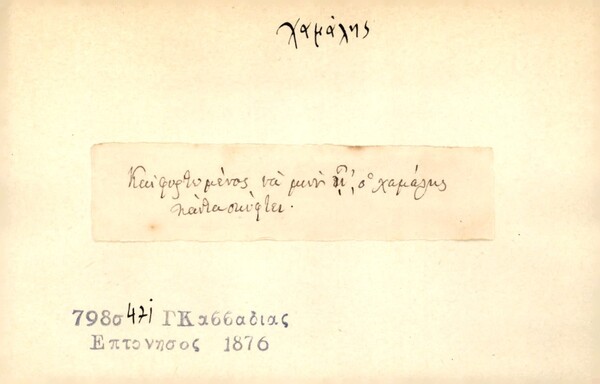 χαμάλης
Και φορτωμένος νὰ μὴν ὁ χαμάλης
πάντα σκύφτει.
798σ471 ΓΚασσαδιας
Επτονησος 1876